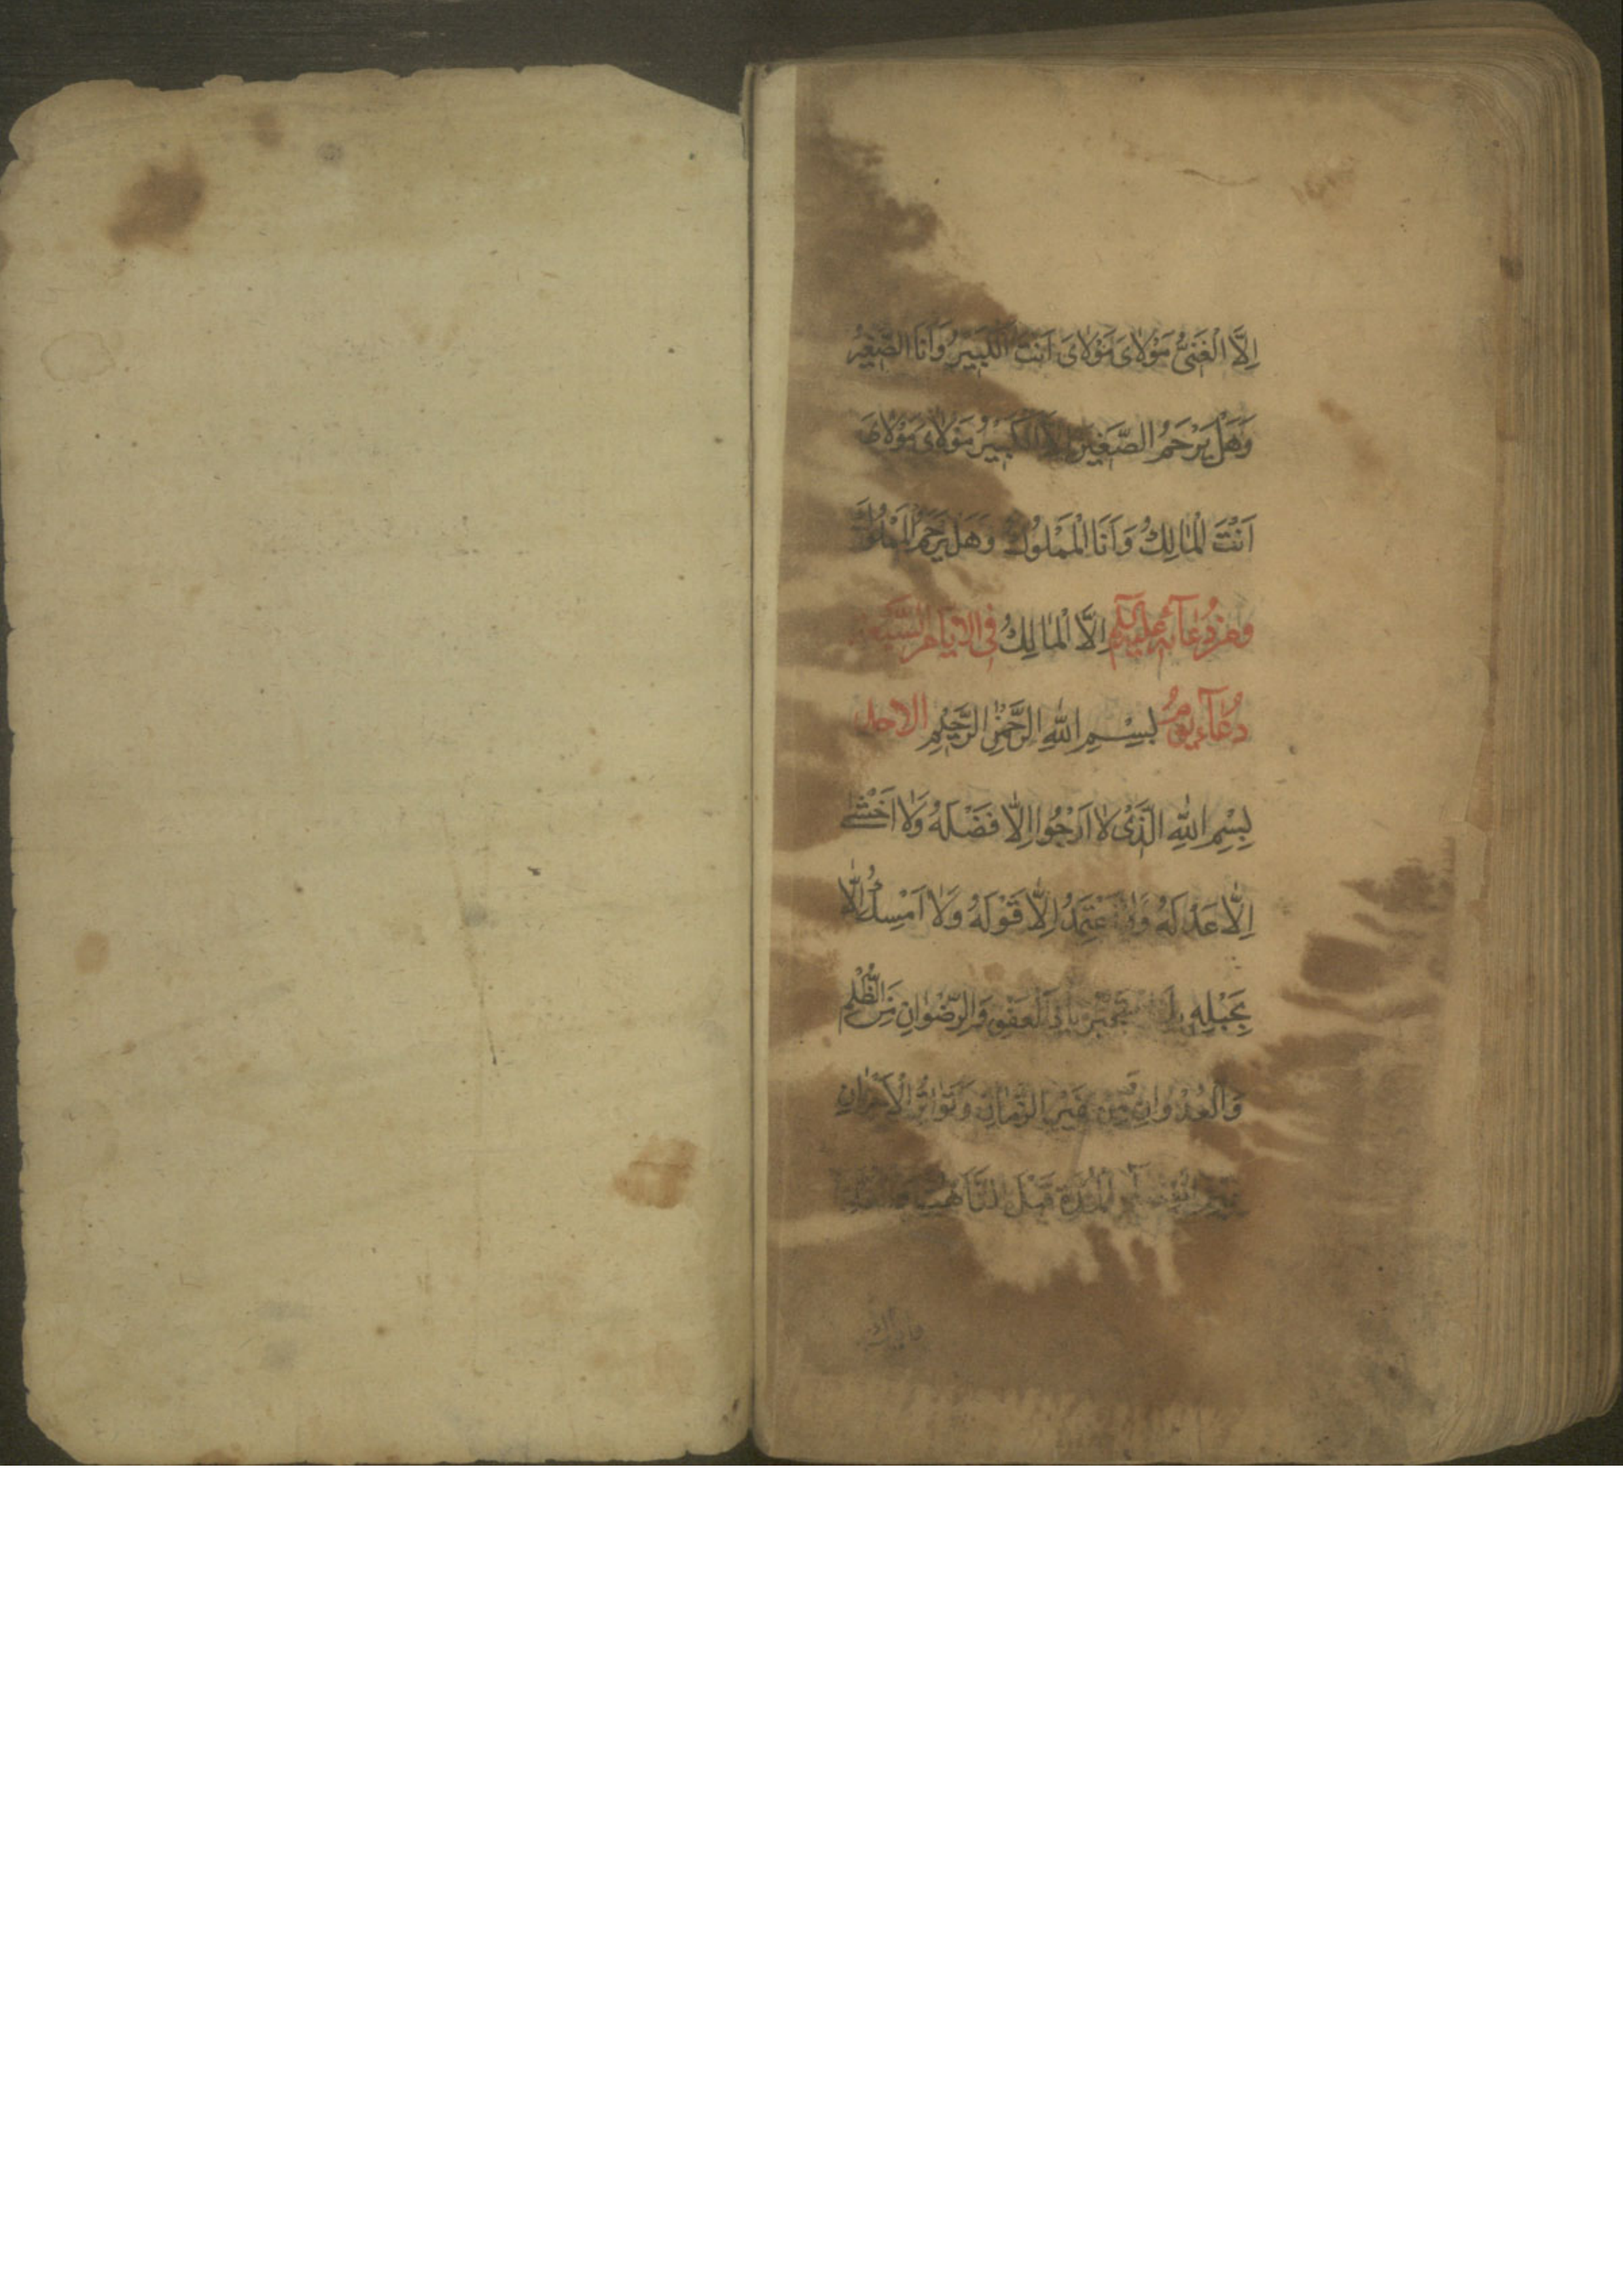 اِلَّا الْغَنِىُّ مَوْلَاىَ مَوْلَاىَ اَنْتَ الْكَبِيْرُ وَاَنَا الصَّغِيْرُ
وَهَلْ يَرْحَمُ الصَّغِيْرَ اِلَّا الْكَبِيْرُ مَوْلَاىَ مَوْلَاىَ
اَنْتَ الْمَالِكُ وَاَنَا الْمَمْلُوْكُ وَهَلْ يَرْحَمُ الْمَمْلُوْكَ
ومن دُعَآئِه عليه السلم اِلَّا الْمَالِكُ فى الايام السبعة
دُعَآء يومُ بِسْمِ اللهِ الرَّحْمٰنِ الرَّحِيْمِ الاحد
بِسْمِ اللهِ الَّذِىْ لَا اَرْجُوا اِلَّا فَضْلَهُ وَلَا اَخْشٰى
اِلَّا عَدْلَهُ وَلَا اَعْتَمِدُ اِلَّا قَوْلَهُ وَلَا اَمْسِكُ اِلَّا
بِحَبْلِهِ بِكَ يَا ذَا الْعَفْوِ وَالرِّضْوَانِ مِنَ الظُّلْمِ
وَالْعُدْوَانِ وَمِنْ غِيَرِ الزَّمَانِ وَتَوَاتُرِ الْاَحْزَانِ
الْمُدَّةِ قَبْلَ التَّاَهُّبِ